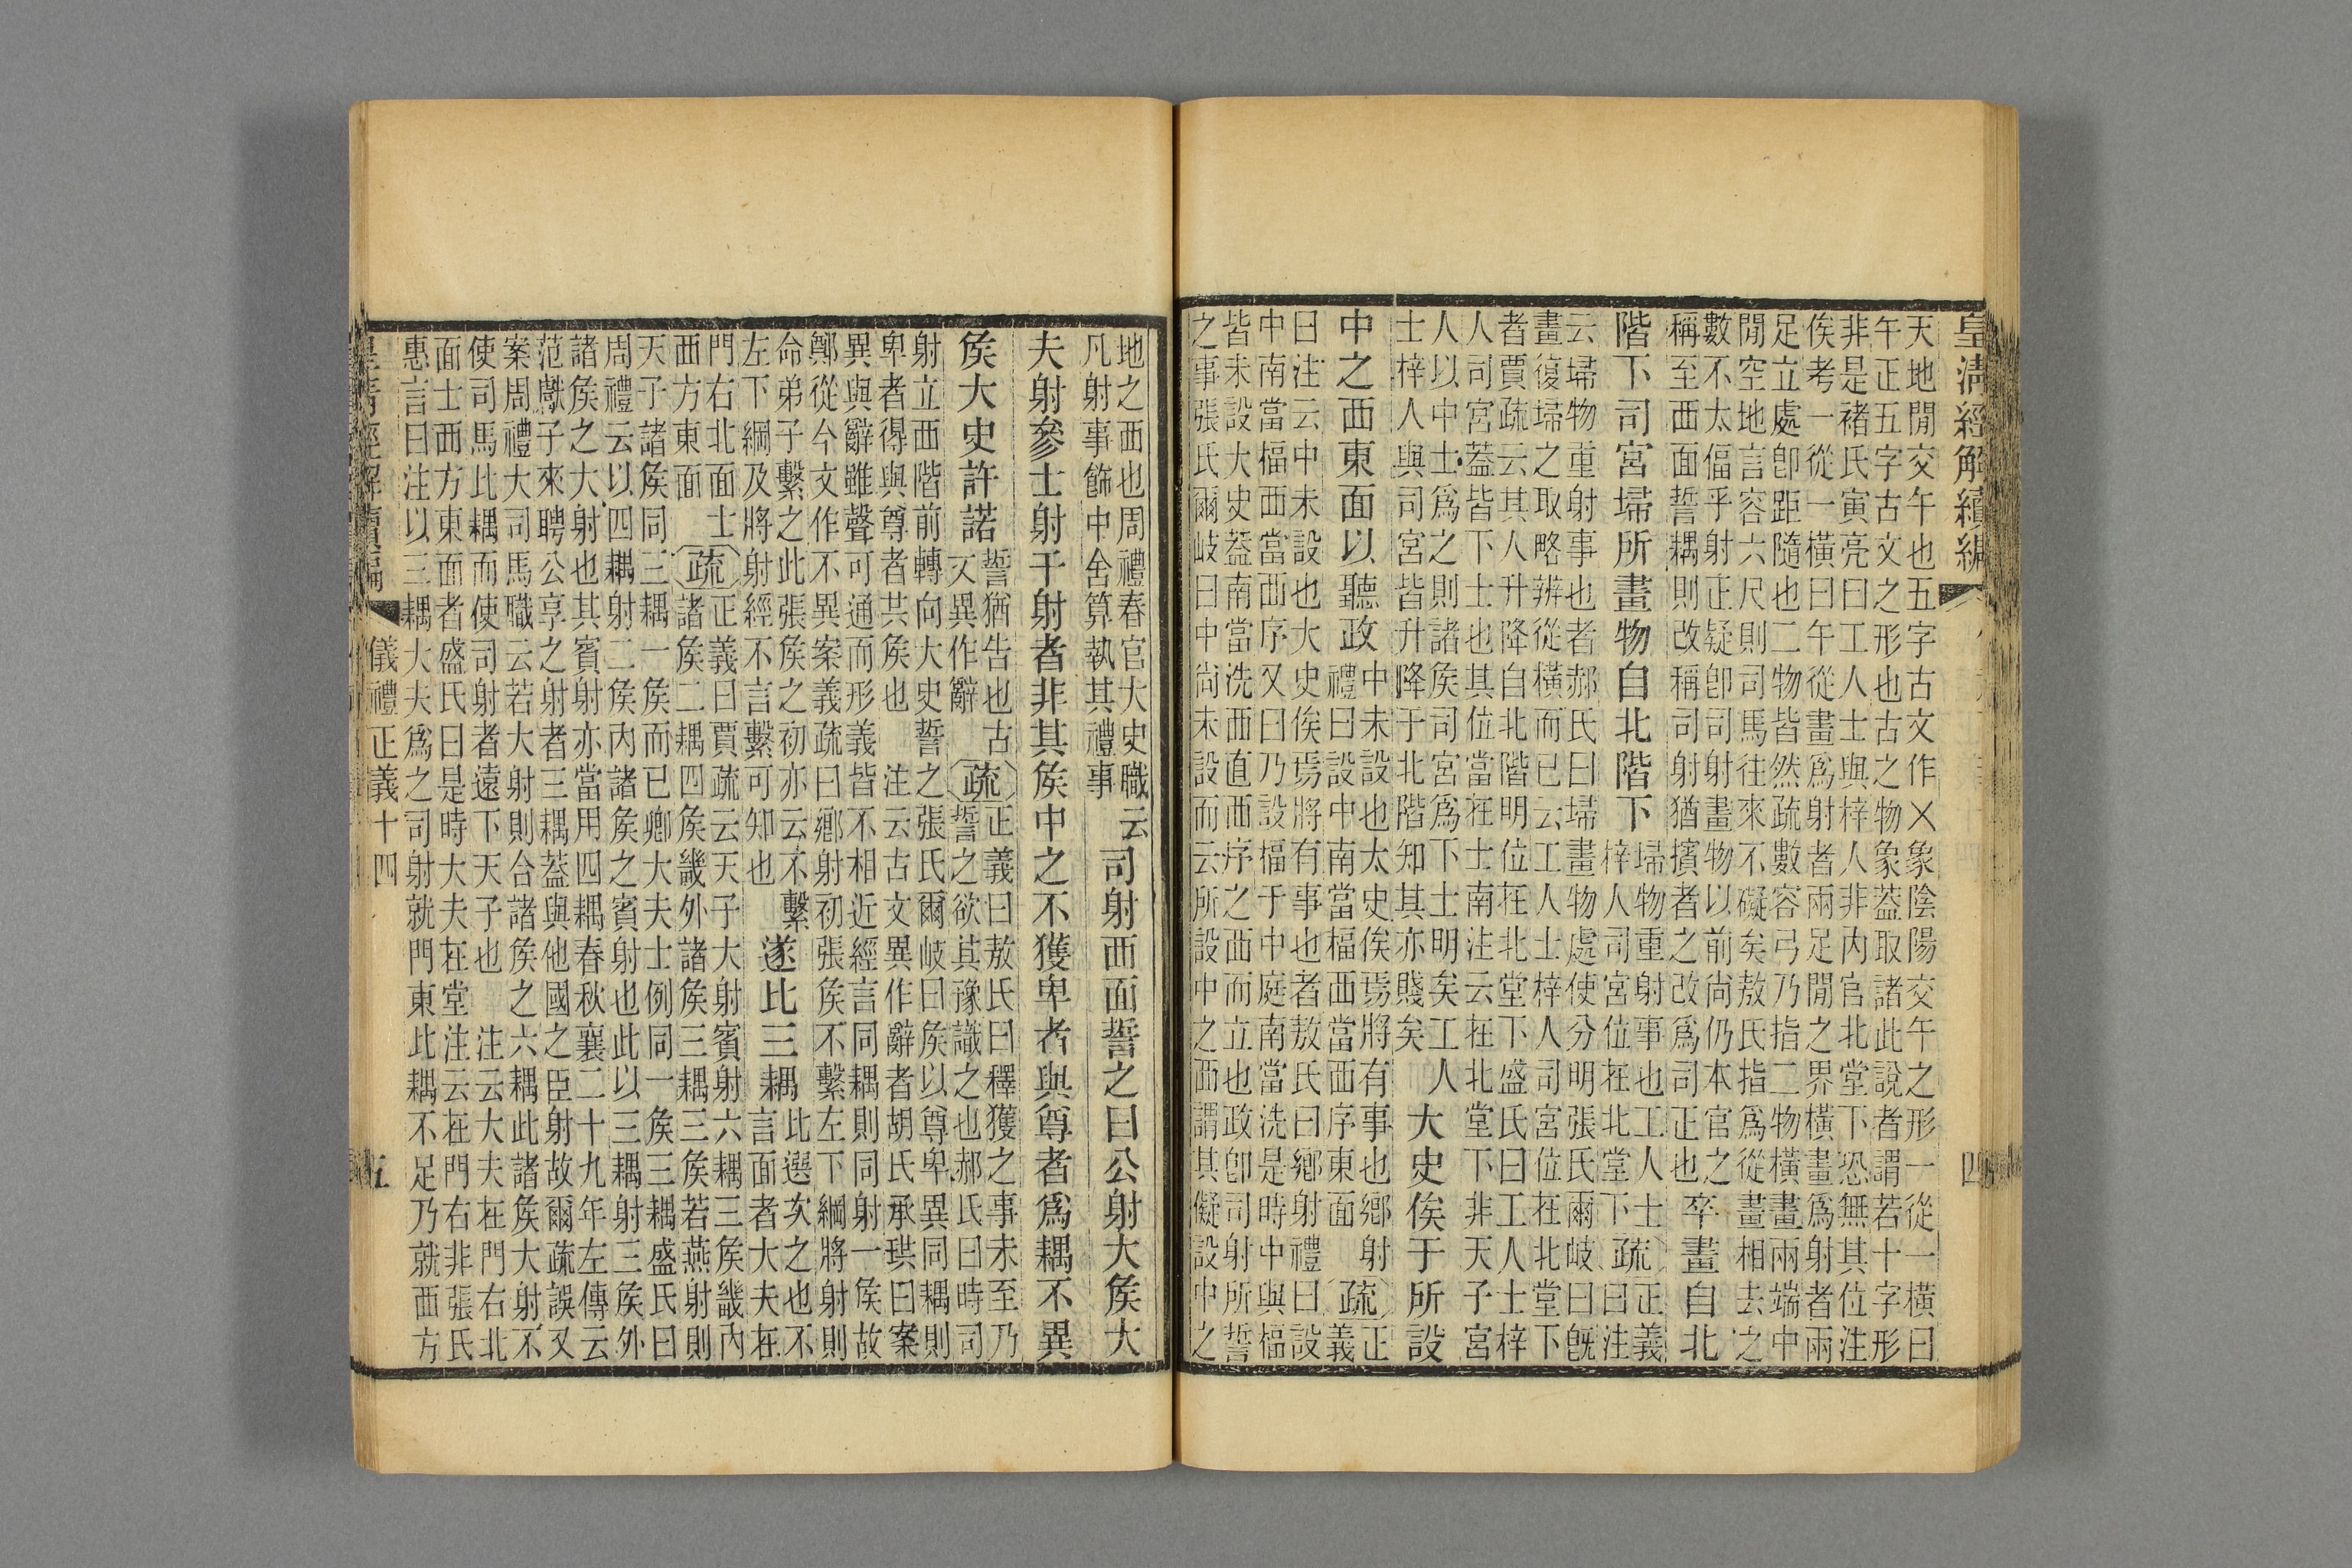 皇清經解續編
四
天地閒交午也五字古文作㐅象陰陽交午之形一從一橫曰
午正五字古文之形也古之物象蓋取諸此說者謂若十字形
非是褚氏寅亮曰工人士與梓人非內官北堂下恐無其位注
俟考一從一橫曰午從畫爲射者兩足閒之界橫畫爲射者兩
足立處卽距隨也二物皆然疏數容弓乃指二物橫畫兩端中
閒空地言容六尺則司馬往來不礙矣敖氏指爲從畫相去之
數不太偪乎射正疑卽司射畫物以前尚仍本官之
稱至西面誓耦則改稱司射猶擯者之改爲司正也
卒畫自北
階下司宮埽所畫物自北階下
埽物重射事也工人士
梓人司宮位在北堂下
疏
正義
曰注
云埽物重射事也者郝氏曰埽畫物處使分明張氏爾岐曰旣
畫復埽之取略辨從橫而已云工人士梓人司宮位在北堂下
者賈疏云其人升降自北階明位在北堂下盛氏曰工人士梓
人司宮蓋皆下士也其位當在士南注云在北堂下非天子宮
人以中士爲之則諸侯司宮爲下士明矣工人
士梓人與司宮皆升降于北階知其亦賤矣
大史俟于所設
中之西東面以聽政
中未設也太史俟焉將有事也鄉射
禮曰設中南當楅西當西序東面
疏
正
義
曰注云中未設也大史俟焉將有事也者敖氏曰鄉射禮曰設
中南當楅西當西序又曰乃設楅于中庭南當洗是時中與楅
皆未設大史蓋南當洗西直西序之西而立也政卽司射所誓
之事張氏爾岐曰中尚未設而云所設中之西謂其儗設中之
地之西也周禮春官大史職云
凡射事飾中舍算執其禮事
司射西面誓之曰公射大侯大
夫射參士射干射者非其侯中之不獲卑者與尊者爲耦不異
侯大史許諾
誓猶告也古
文異作辭
疏
正義曰敖氏曰釋獲之事未至乃
誓之欲其豫識之也郝氏曰時司
射立西階前轉向大史誓之張氏爾岐曰侯以尊卑異同耦則
卑者得與尊者共侯也 注云古文異作辭者胡氏承珙曰案
異與辭雖聲可通而形義皆不相近經言同耦則同射一侯故
鄭從今文作不異案義疏曰鄉射初張侯不繫左下綱將射則
命弟子繫之此張侯之初亦云不繫
左下綱及將射經不言繫可知也
遂比三耦
比選次之也不
言面者大夫在
門右北面士
西方東面
疏
正義曰賈疏云天子大射賓射六耦三侯畿內
諸侯二耦四侯畿外諸侯三耦三侯若燕射則
天子諸侯同三耦一侯而已卿大夫士例同一侯三耦盛氏曰
周禮云以四耦射二侯內諸侯之賓射也此以三耦射三侯外
諸侯之大射也其賓射亦當用四耦春秋襄二十九年左傳云
范獻子來聘公享之射者三耦蓋與他國之臣射故爾疏誤又
案周禮大司馬職云若大射則合諸侯之六耦此諸侯大射不
使司馬比耦而使司射者遠下天子也 注云大夫在門右北
面士西方東面者盛氏曰是時大夫在堂注云在門右非張氏
惠言曰注以三耦大夫爲之司射就門東比耦不足乃就西方
皇清經解續編
儀禮正義十四
五